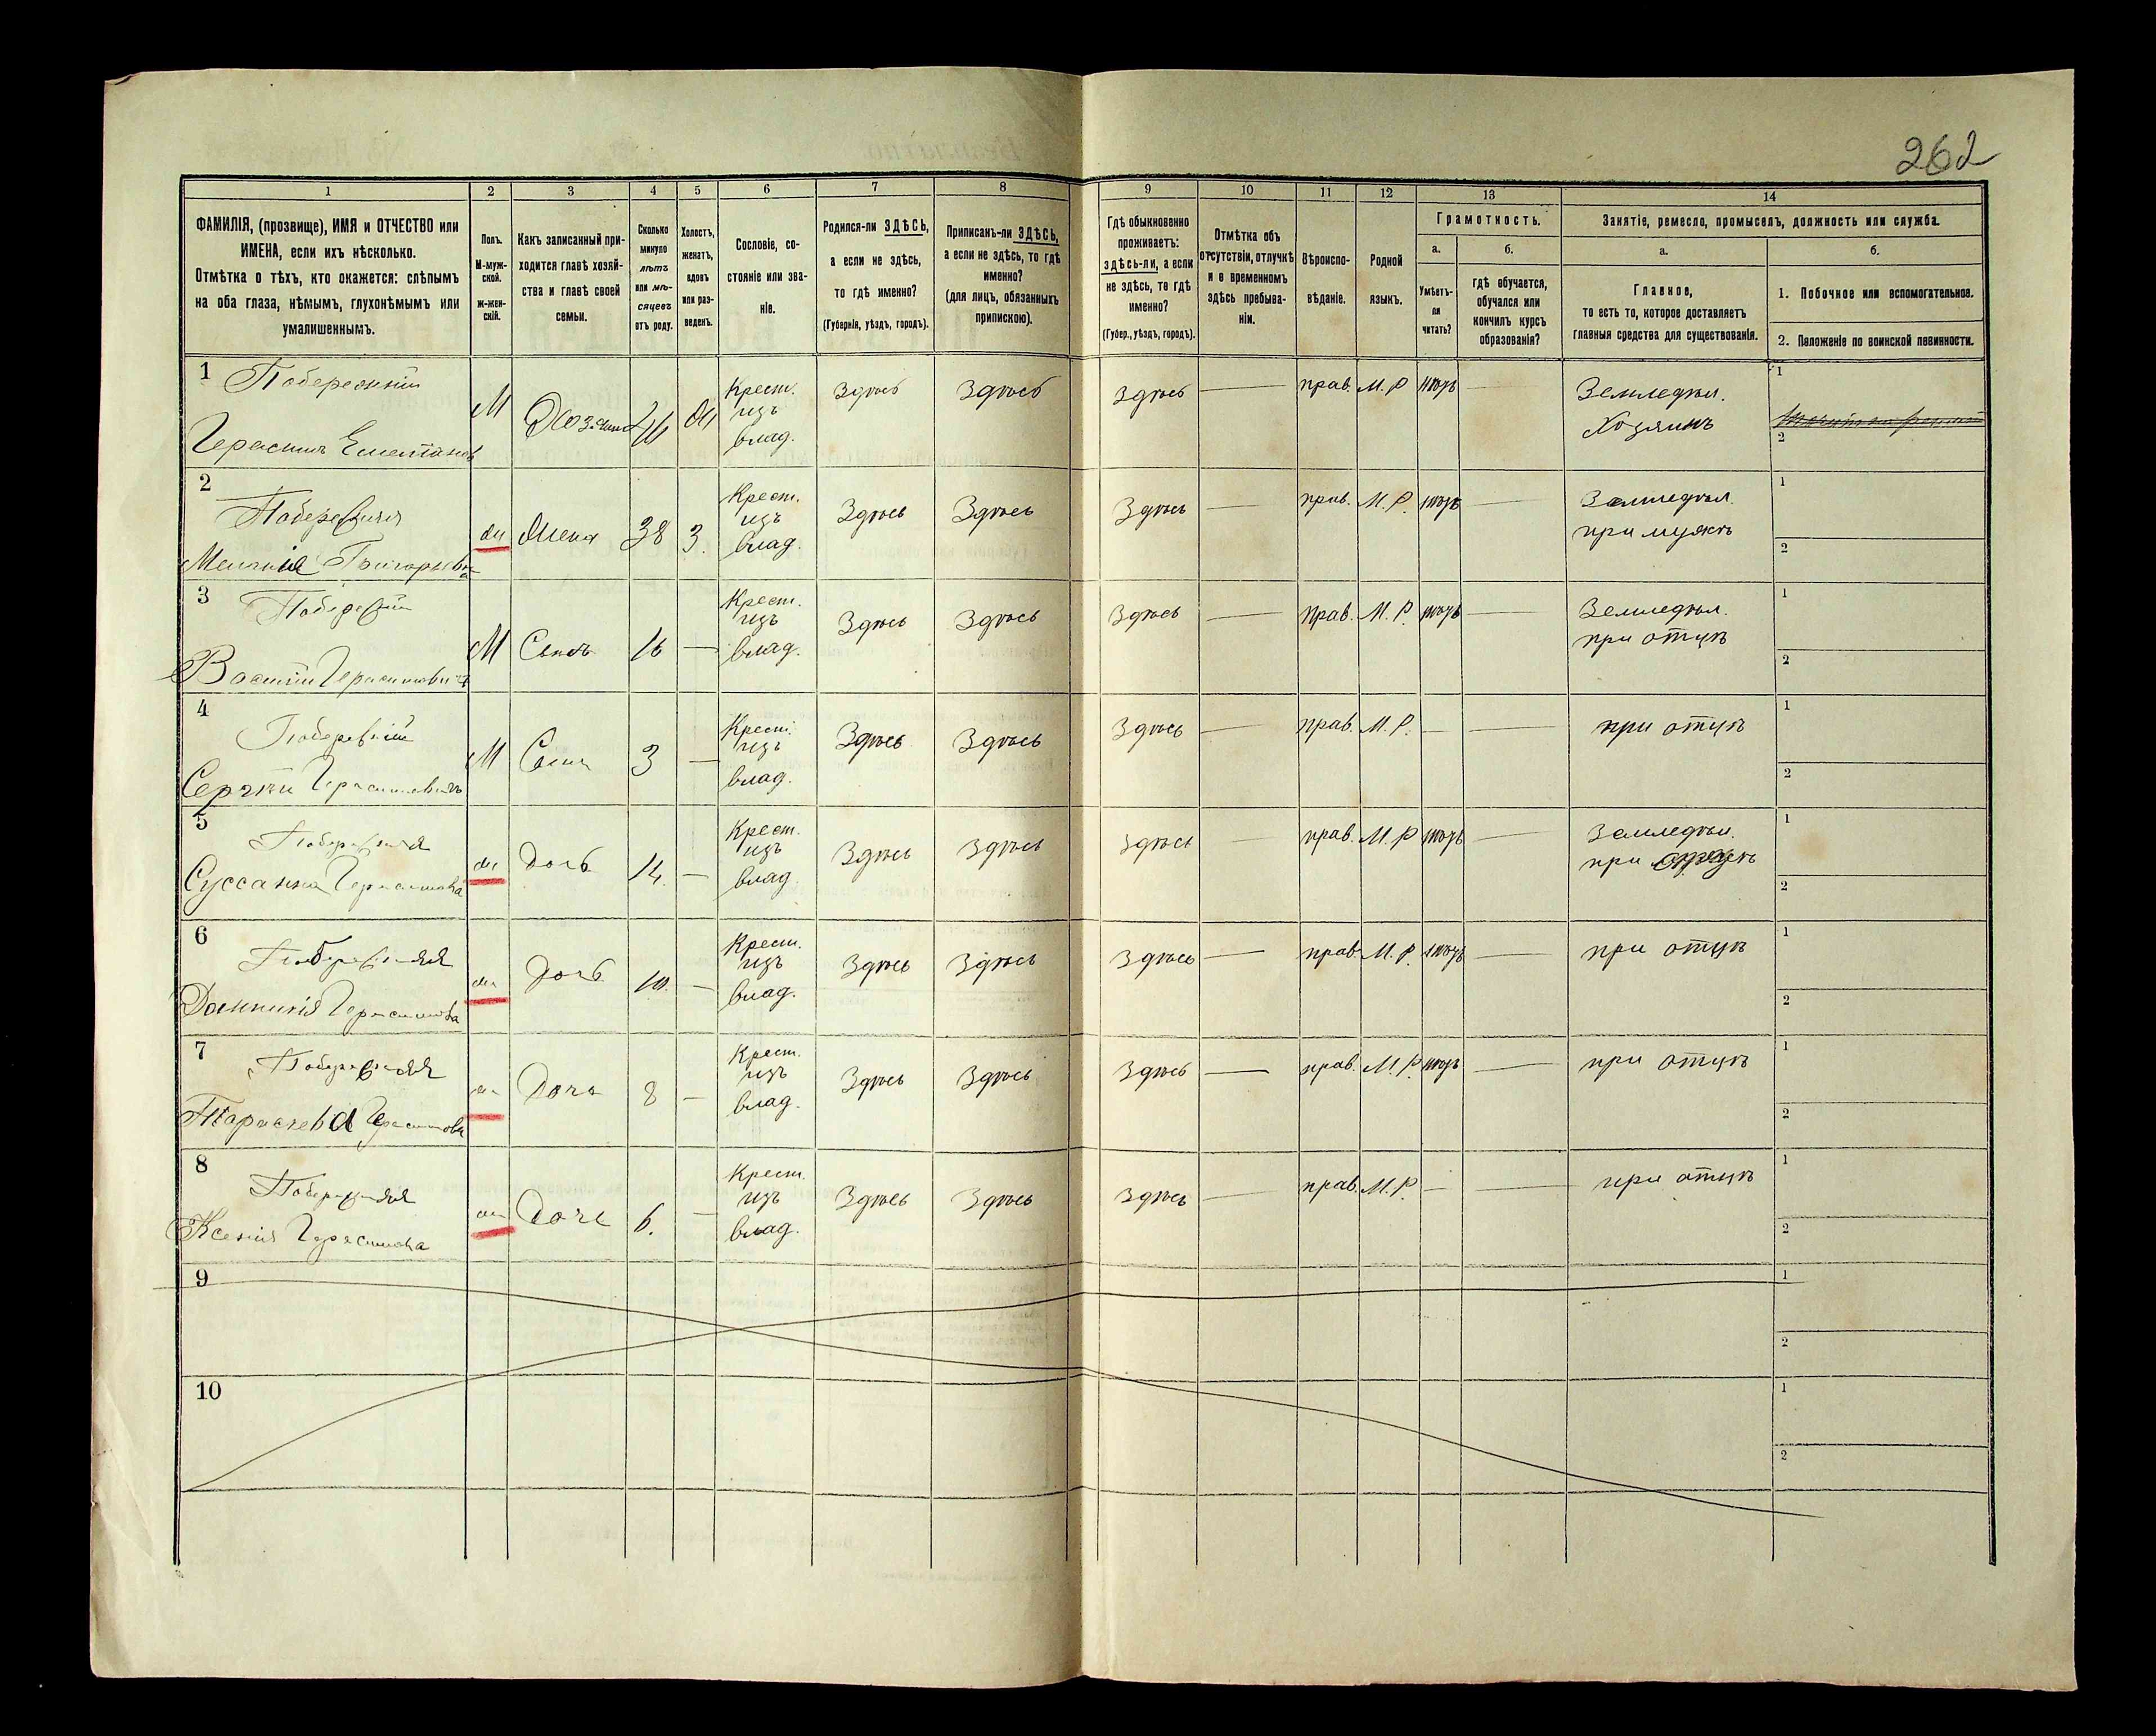 262
1 2 3 4 5 6 7 8 9 10 11 12 13 14
ФАМИЛІЯ, (прозвище), ИМЯ и ОТЧЕСТВО или
ИМЕНА, если ихъ нѣсколько.
Отмѣтка о тѣхъ, кто окажется: слѣпымъ
на оба глаза, нѣмымъ, глухонѣмымъ или
умалишеннымъ.
Полъ.
М-муж-
ской.
ж-жен-
скій.
Какъ записанный при-
ходится главѣ хозяй-
ства и главѣ своей
семьи.
Сколько
минуло
лѣтъ
или мѣ-
сяцевъ
отъ роду.
Холостъ,
женатъ,
вдовъ
или раз-
веденъ.
Сословіе, со-
стояніе или зва-
ніе.
Родился-ли ЗДѢСЬ,
а если не здѣсь,
то гдѣ именно?
(Губернія, уѣздъ, городъ).
Приписанъ-ли ЗДѢСЬ,
а если не здѣсь, то гдѣ
именно?
(для лицъ, обязанныхъ
припискою).
Гдѣ обыкновенно
проживаетъ:
здѣсь-ли, а если
не здѣсь, то гдѣ
именно?
(Губер., уѣздъ, городъ).
Отмѣтка объ
отсутствіи, отлучкѣ
и о временномъ
здѣсь пребыва-
ніи.
Вѣроиспо-
вѣданіе.
Родной
языкъ.
Грамотность.
а.
Умѣетъ-
ли
читать?
б.
гдѣ обучается,
обучался или
кончилъ курсъ
образованія?
Занятіе, ремесло, промыселъ, должность или служба.
а.
Главное,
то есть то, которое доставляетъ
главныя средства для существованія.
б.
1. Побочное или вспомогательное.
2. Положеніе по воинской повинности.
1 Побережній
Герасимъ
М Хозяинъ
Крест.
изъ
влад.
Здѣсь Здѣсь Здѣсь — прав. М. Р. нѣтъ —
Земледѣл.
Хозяинъ
1
2
2
Григорьевна
ж Жена 38 З.
Крест.
изъ
влад.
Здѣсь Здѣсь Здѣсь — прав. М. Р. нѣтъ —
Земледѣл.
при мужѣ
1
2
3
Герасимовичъ
М Сынъ 16 —
Крест.
изъ
влад.
Здѣсь Здѣсь Здѣсь — прав. М. Р. нѣтъ —
Земледѣл.
при отцѣ
1
2
4
Сергѣй Герасимовичъ
М Сынъ 3 —
Крест.
изъ
влад.
Здѣсь Здѣсь Здѣсь — прав. М. Р. — —
при отцѣ
1
2
5
Суссанна Герасимова
ж Дочь 14. —
Крест.
изъ
влад.
Здѣсь Здѣсь Здѣсь — прав. М. Р. нѣтъ —
Земледѣл.
при
1
2
6
Домникія Герасимова
ж Дочь 10. —
Крест.
изъ
влад.
Здѣсь Здѣсь Здѣсь — прав. М. Р. нѣтъ —
при отцѣ
1
2
7
Герасимова
ж Дочь 8 —
Крест.
изъ
влад.
Здѣсь Здѣсь Здѣсь — прав. М. Р. нѣтъ —
при отцѣ
1
2
8
Ксенія Герасимова
ж Дочь 6. —
Крест.
изъ
влад.
Здѣсь Здѣсь Здѣсь — прав. М. Р. — —
при отцѣ
1
2
9
1
2
10
1
2